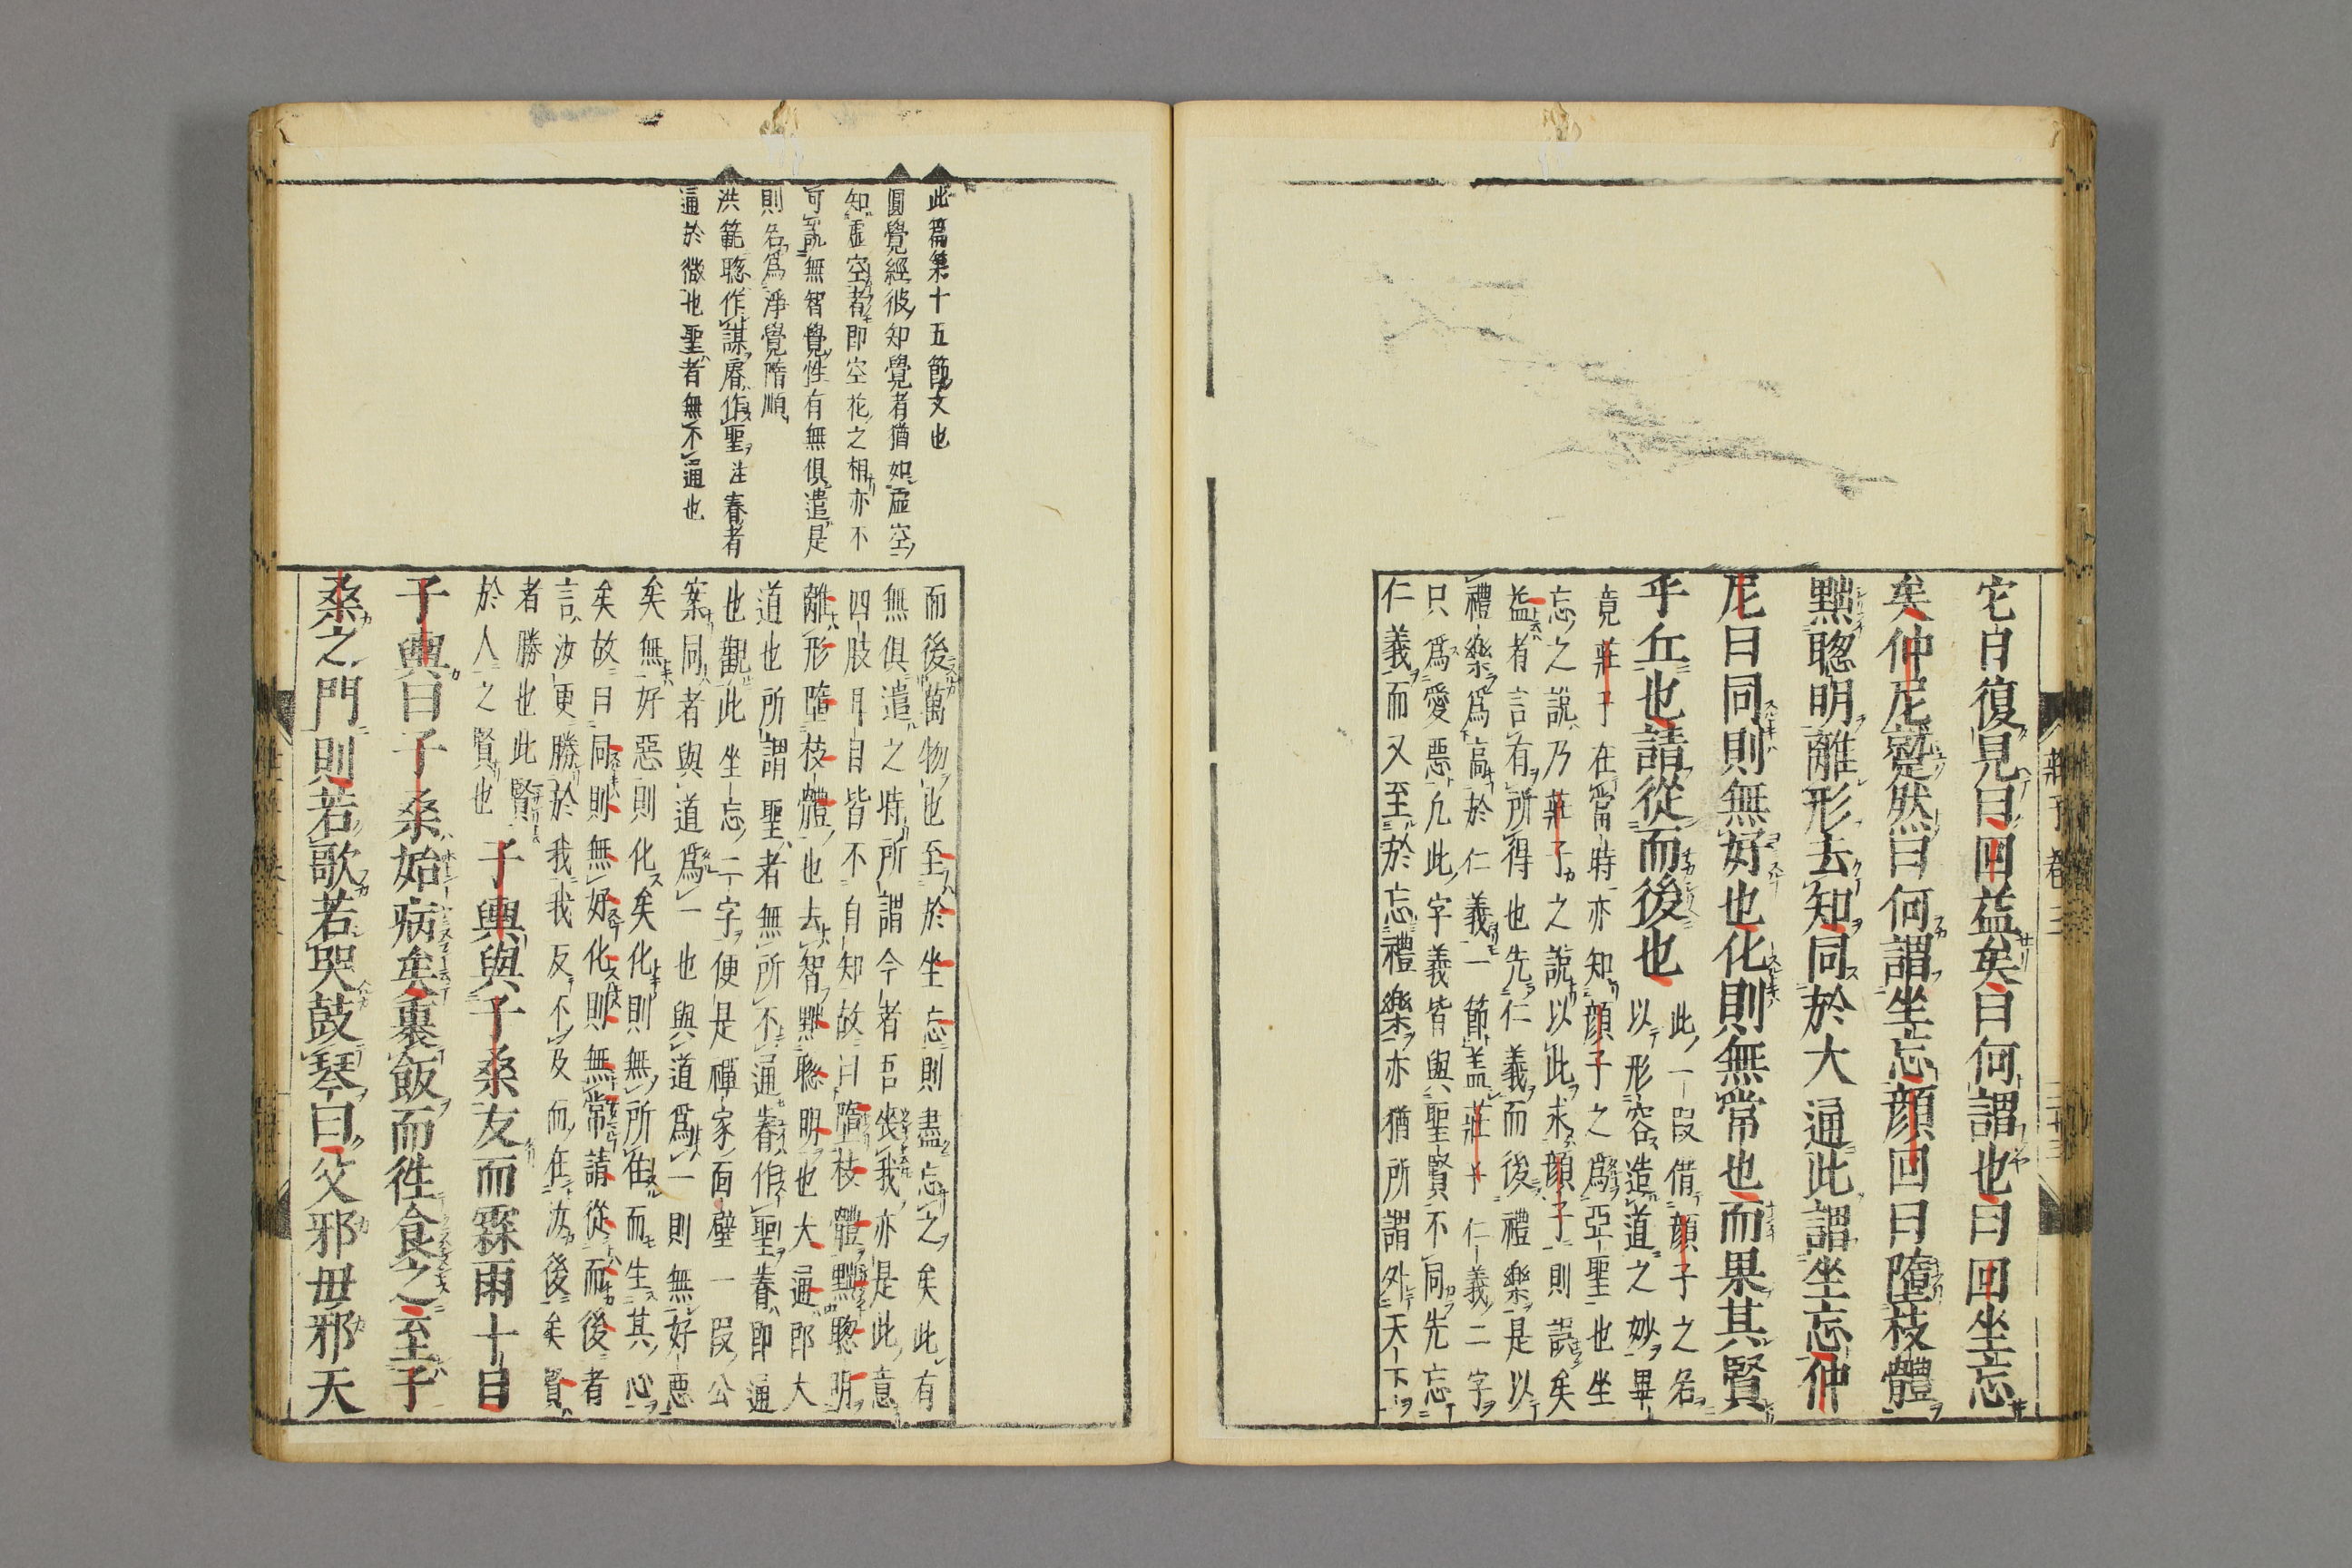 它日復見曰回益矣曰何謂也曰回坐忘
矣仲尼蹵然曰何謂坐忘顔回曰墮枝體
黜聦明離形去知同於大通此謂坐忘仲
尼曰同則無好也化則無常也而果其賢
乎丘也請從而後也
此一段借顔子之名
以形容造道之妙畢
竟莊子在當時亦知顔子之爲亞聖也坐
忘之說乃莊子之說以此求顔子則誤矣
益者言有所得也先仁義而後禮樂是以
禮樂爲高於仁義一節盖莊子仁義二字
只爲愛惡凢此字義皆與聖賢不同先忘
仁義而又至於忘禮樂亦猶所謂外天下
莊子卷三
此篇第十五節文也
圓覺經彼知覺者猶如虛空
知虛空者即空花之相亦不
可說無智覺性有無俱遣是
則名爲淨覺隋順
洪範聡作謀睿作聖注睿者
通於微也聖者無不通也
而後萬物也至於坐忘則盡忘之矣此有
無俱遣之時所謂今者吾喪我亦是此意
四肢耳目皆不自知故曰墮枝體黜聦明
離形墮枝體也去智黜聡明也大通即大
道也所謂聖者無所不通睿作聖睿即通
也觀此坐忘二字便是禪家面壁一段公
案同者與道爲一也與道爲一則無好惡
矣無好惡則化矣化則無所住而生其心
矣故曰同則無好化則無常請從而後者
言汝更勝於我我反不及而在汝後矣賢
者勝也此賢
於人之賢也
子輿與子桑友而霖雨十日
子輿曰子桑始病矣裹飯而徃食之至子
桑之門則若歌若哭鼓琴曰父邪毋邪天